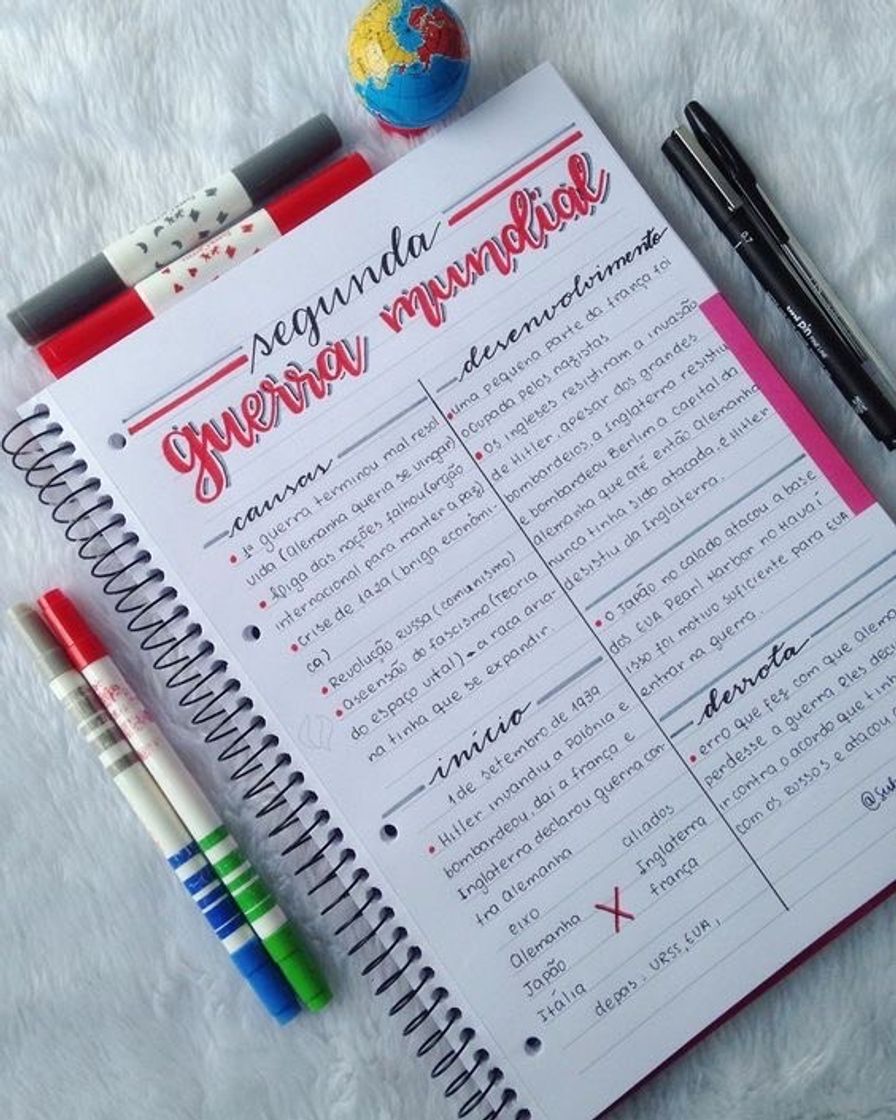 segunda
guerra mundial
causas
1ª guerra terminou mal resol
vida (Alemanha queria se vingar)
A liga das nações falhou (orgão
internacional para manter a paz)
Crise de 1929 (briga econômi-
ca)
Revolução Russa (comunismo)
Ascensão do fascismo (Teoria
do espaço vital) → a raça aria-
na tinha que se expandir.
início
1 de setembro de 1939
Hitler invandiu a Polônia e
bombardeou, daí a frança e
Inglaterra declarou guerra con-
tra Alemanha
eixo
aliados
Alemanha X Inglaterra
Japão
frança
Itália
depois: URSS, EUA,
desenvolvimento
uma pequena parte da frança foi
ocupada pelos nazistas
Os ingleses resistiram a invasão
de Hitler, apesar dos grandes
bombardeios, a Inglaterra resistiu
e bombardeou Berlim a capital da
Alemanha que até então Alemanha
nunca tinha sido atacada, e Hitler
desistiu da Inglaterra.
O Japão no calado atacou a base
dos EUA Pearl Harbor no Havaí
isso foi motivo suficiente para EUA
entrar na guerra.
derrota
erro que fez com que Alem
perdesse a guerra Eles deci
ir contra o acordo que tin
com os Russos e atacou
uni pin
0.7